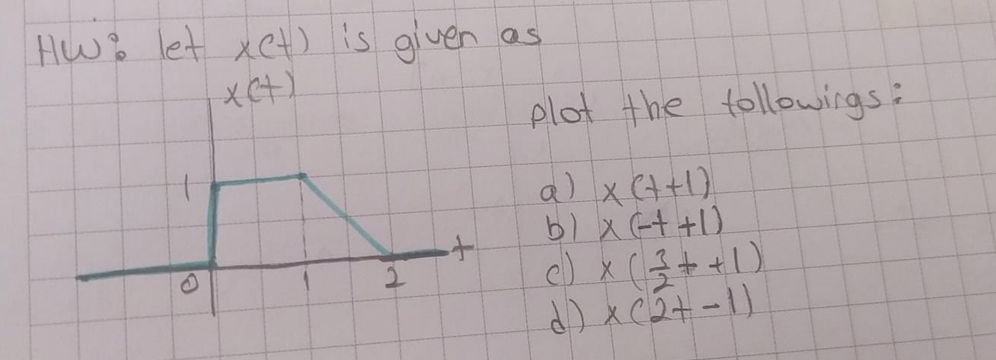 HW: let x(t) is given as
x(t)
plot the followings:
1
a) x(t+1)
b) x(-t+1)
c) x(3/2 t+1)
d) x(2t-1)
0 1 2 t